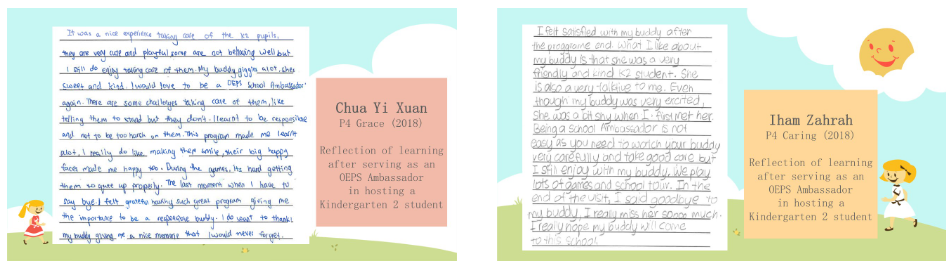 It was a nice experience taking care of the K2 pupils.
they are very cute and playful some are not behaving well but
I still do enjoy taking care of them. My buddy giggles alot, she's
sweet and kind. I would love to be a OEPS School Ambassador
again. There are some challenges taking care of them, like
telling them to stand but they don't. I learnt to be responsible
and not to be too harsh on them. This program made me learnt
alot, I really do like making them smile, their big happy
faces made me happy too. During the games, its hard getting
them to queue up properly. The last moment when I have to
say bye I felt grateful having such great program giving me
the importance to be a responsible buddy. I do want to thanks
my buddy giving me a nice memorie that I would never forget.
Chua Yi Xuan
P4 Grace (2018)
Reflection of learning
after serving as an
OEPS Ambassador
in hosting a
Kindergarten 2 student
I felt satisfied with my buddy after
the programme and what I like about
my buddy is that she was a very
friendly and kind K2 student. She
is also a very talkative to me. Even
though my buddy was very excited,
She was a bit shy when I first met her.
Being a school Ambassador is not
easy as you need to watch your buddy
very carefully and take good care but
I still enjoy with my buddy. We play
lots of games and school tour. In the
end of the visit, I said goodbye to
my buddy. I really miss her soooo much.
I really hope my buddy will come
to this school.
Iham Zahrah
P4 Caring (2018)
Reflection of learning
after serving as an
OEPS Ambassador
in hosting a
Kindergarten 2 student